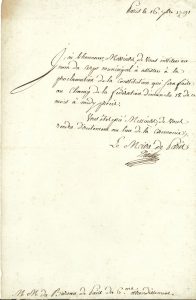 Paris le 16 7bre 1791
J'ai l'honneur, Messieurs, de vous inviter au
nom du Corps municipal à assister à la
proclamation de la Constitution qui sera faite
au Champ de la fédération dimanche 18 de ce
mois à midi précis.
Vous êtes priés, Messieurs, de vous
rendre directement au lieu de la cérémonie.
Le Maire de Paris
M M de Paris des 6 me